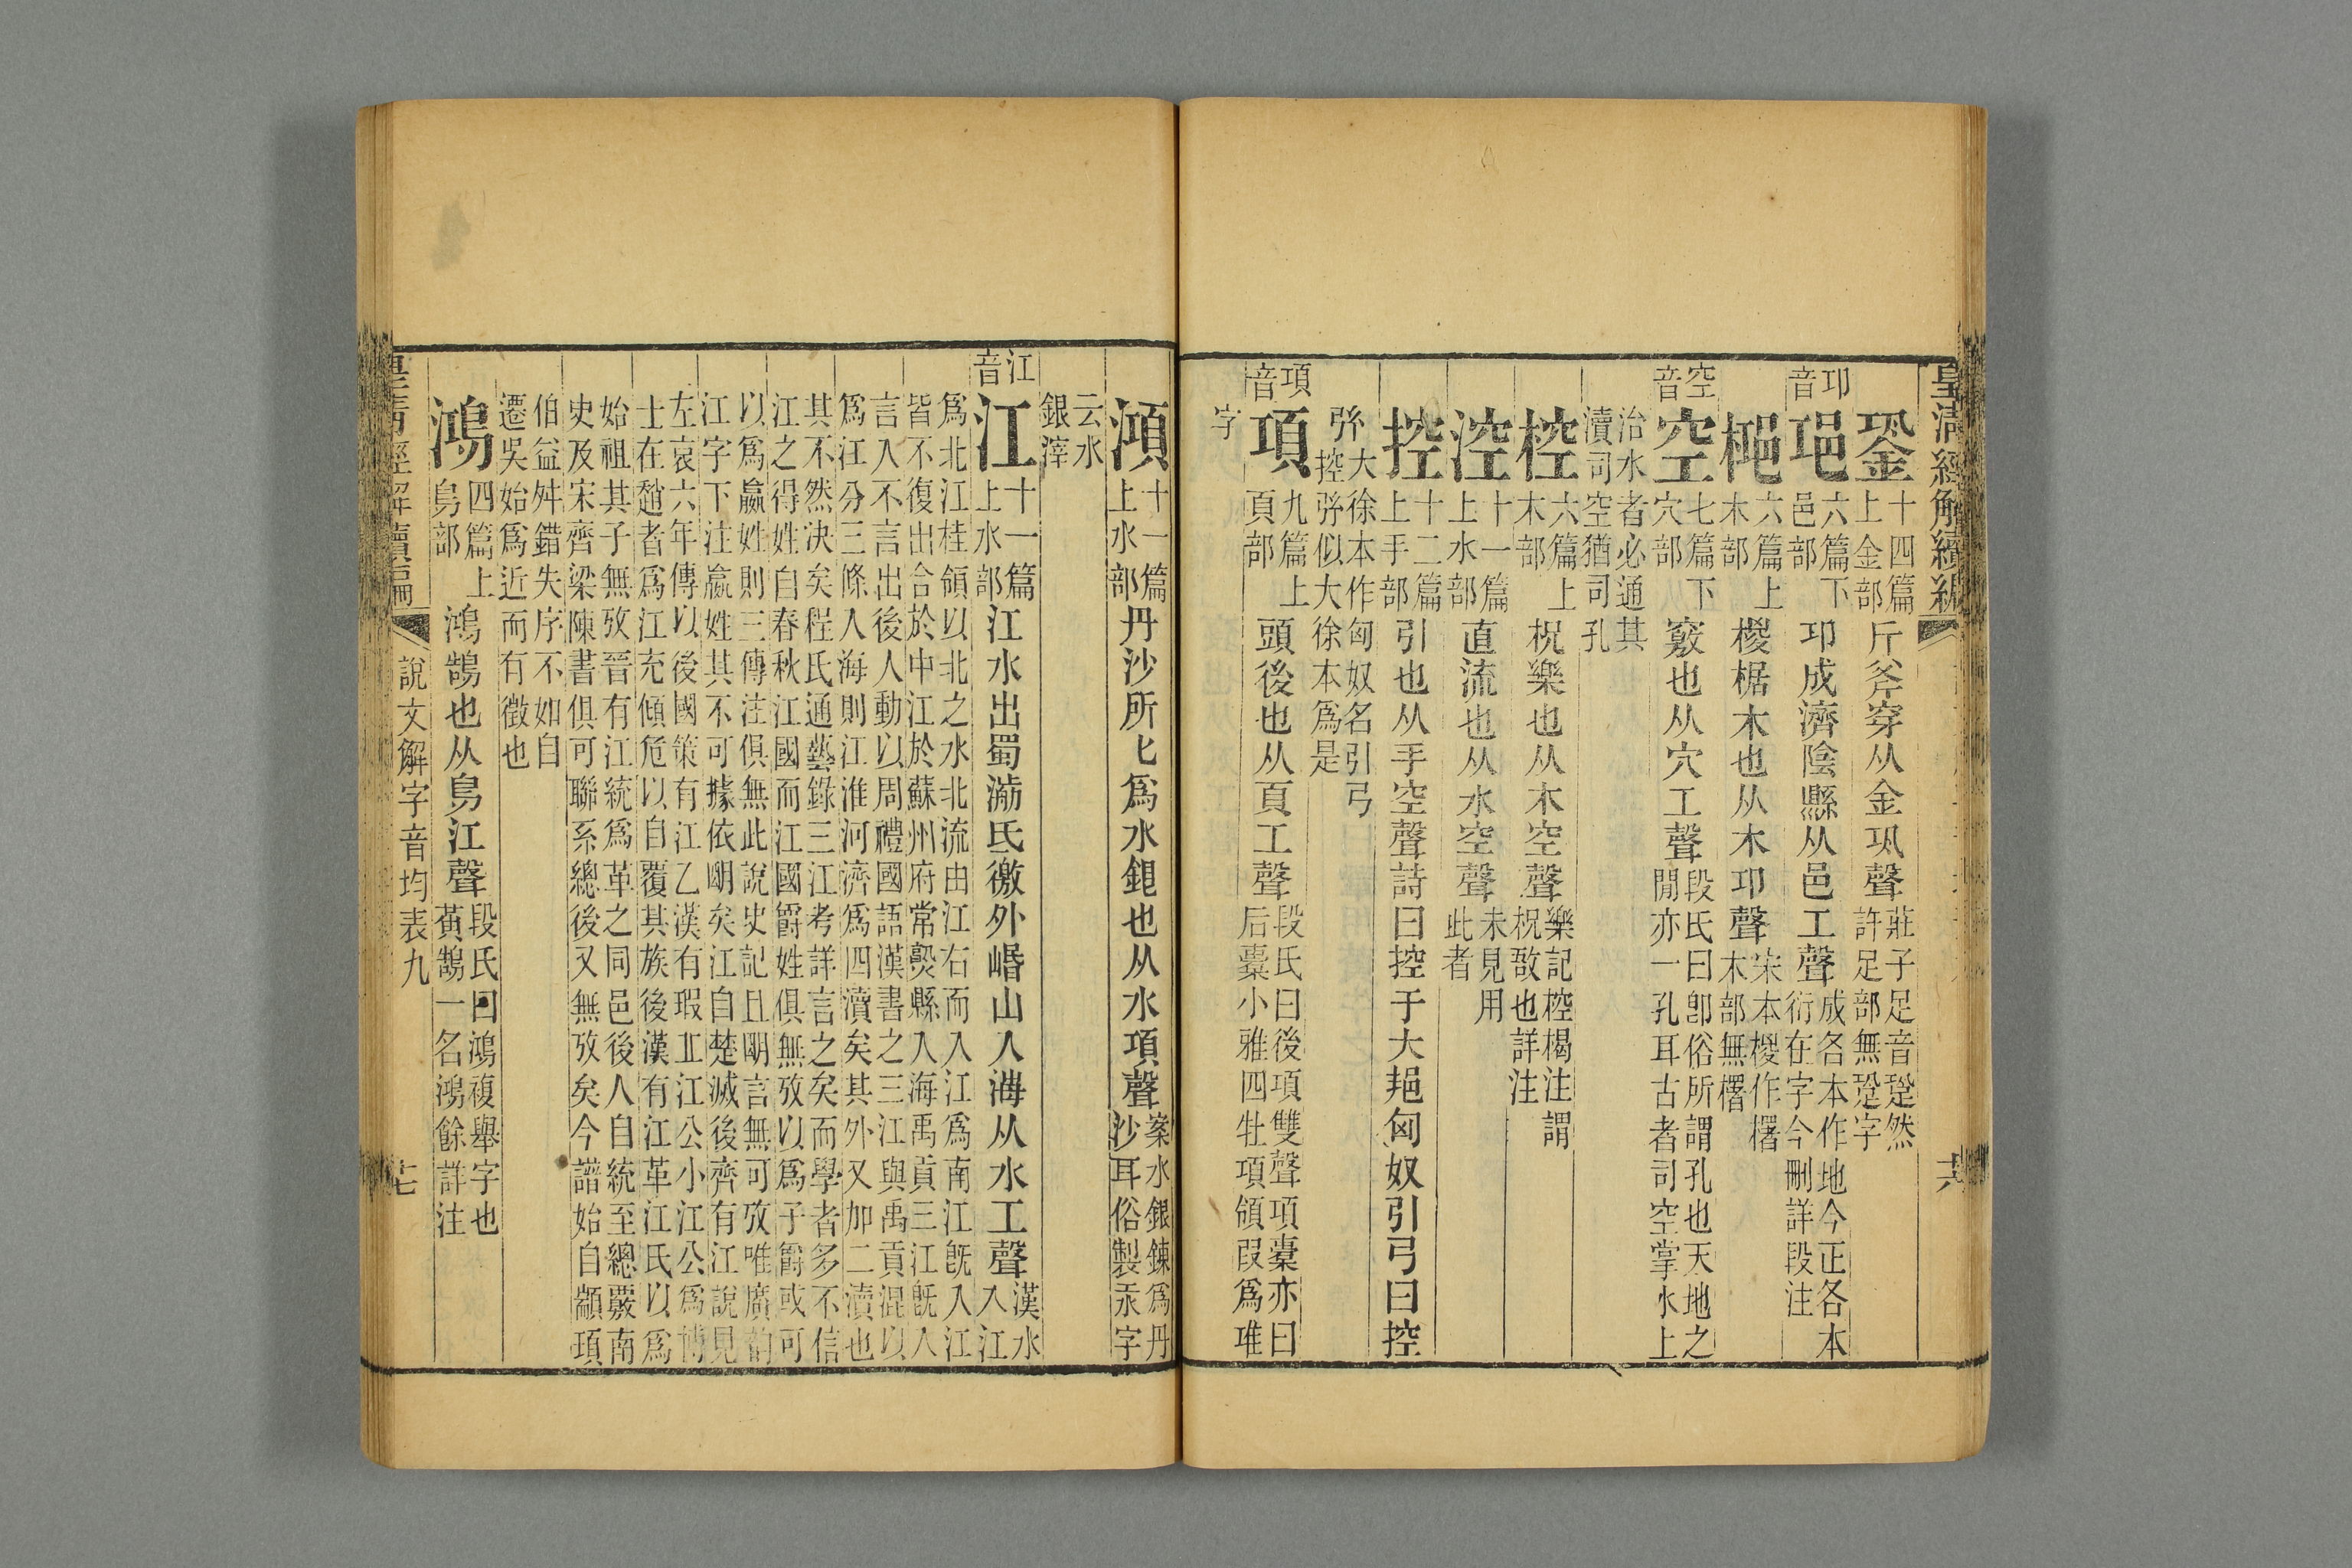 皇清經解續編
六
銎十四篇上金部斤斧穿从金巩聲莊子足音跫然許足部無跫字
邛音
䢼六篇下邑部邛成濟陰縣从邑工聲成各本作地今正各本衍在字今刪詳段注
㮂六篇上木部椶椐木也从木邛聲宋本椶作櫡木部無櫡
空音
空七篇下穴部竅也从穴工聲段氏曰卽俗所謂孔也天地之閒亦一孔耳古者司空掌水上
治水者必通其瀆司空猶司孔
椌六篇上木部柷樂也从木空聲樂記椌楬注謂柷敔也詳注
涳十一篇上水部直流也从水空聲未見用此者
控十二篇上手部引也从手空聲詩曰控于大邦匈奴引弓曰控
弮大徐本作匈奴名引弓控弮似大徐本爲是
項音
項九篇上頁部頭後也从頁工聲段氏曰後項雙聲項橐亦曰后橐小雅四牡項領叚爲琟
字
澒十一篇上水部丹沙所匕爲水銀也从水項聲案水銀鍊爲丹沙耳俗製汞字
云水銀滓
江音
江十一篇上水部江水出蜀湔氐徼外崏山入海从水工聲漢水入江
爲北江桂領以北之水北流由江右而入江爲南江旣入江皆不復出合於中江於蘇州府常熟縣入海禹貢三江旣入
言入不言出後人動以周禮國語漢書之三江與禹貢混以爲江分三條入海則江淮河濟爲四瀆矣其外又加二瀆也
其不然決矣程氏通藝錄三江考詳言之矣而學者多不信江之得姓自春秋江國而江國爵姓俱無攷以爲子爵或可
以爲嬴姓則三傳注俱無此說史記且明言無可攷唯廣韵江字下注嬴姓其不可據依明矣江自楚滅後齊有江說見
左哀六年傳以後國策有江乙漢有瑕丘江公小江公爲博士在趙者爲江充傾危以自覆其族後漢有江革江氏以爲
始祖其子無攷晉有江統爲革之同邑後人自統至總覈南史及宋齊梁陳書俱可聯系總後又無攷矣今譜始自顓頊
伯益舛錯失序不如自遷吳始爲近而有徵也
鴻四篇上鳥部鴻鵠也从鳥江聲段氏曰鴻複舉字也黃鵠一名鴻餘詳注
皇淸經解續編
說文解字音均表九
七